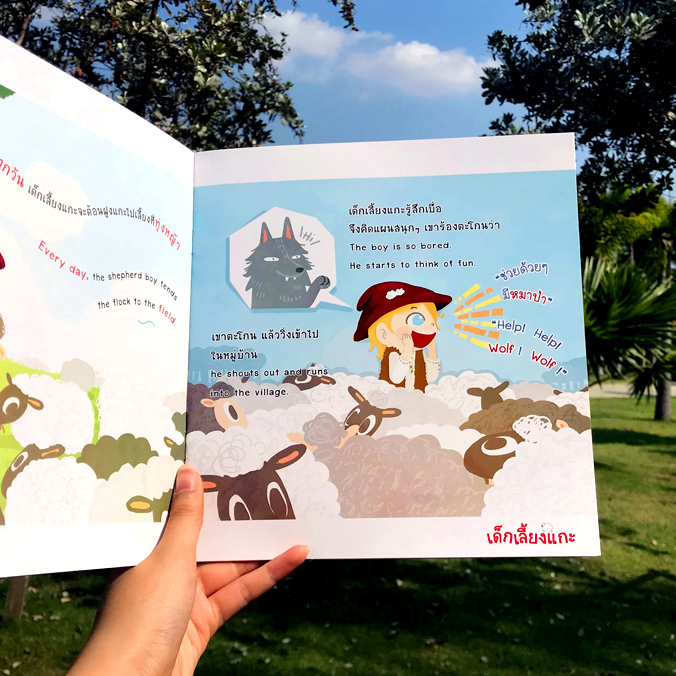 เด็กเลี้ยงแกะจะต้อนฝูงแกะไปเลี้ยงที่ทุ่งหญ้า
Every day, the shepherd boy tends
the flock to the field
Hi!
เด็กเลี้ยงแกะรู้สึกเบื่อ
จึงคิดแผนสนุกๆ เขาร้องตะโกนว่า
The boy is so bored.
He starts to think of fun.
"ช่วยด้วยๆ
มีหมาป่า"
"Help! Help!
Wolf! Wolf!"
เขาตะโกน แล้ววิ่งเข้าไป
ในหมู่บ้าน
he shouts out and runs
into the village.
เด็กเลี้ยงแกะ